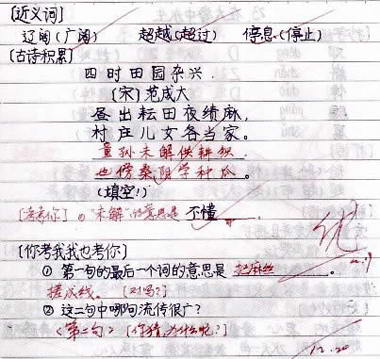 [近义词]
辽阔(广阔) 超越(超过) 停息(停止)
[古诗积累]
四时田园杂兴.
[宋]范成大
昼出耘田夜绩麻,
村庄儿女各当家。
童孙未解供耕织,
也傍桑阴学种瓜。
(填空!)
[考考你]。"未解"的意思是 不懂 。
[你考我我也考你]
① 第一句的最后一个词的意思是 把麻丝 。
搓成线。 [对吗?]
② 这二句中哪句流传很广?
《第二句》 [你猜,为什么呢?]
优
12.20